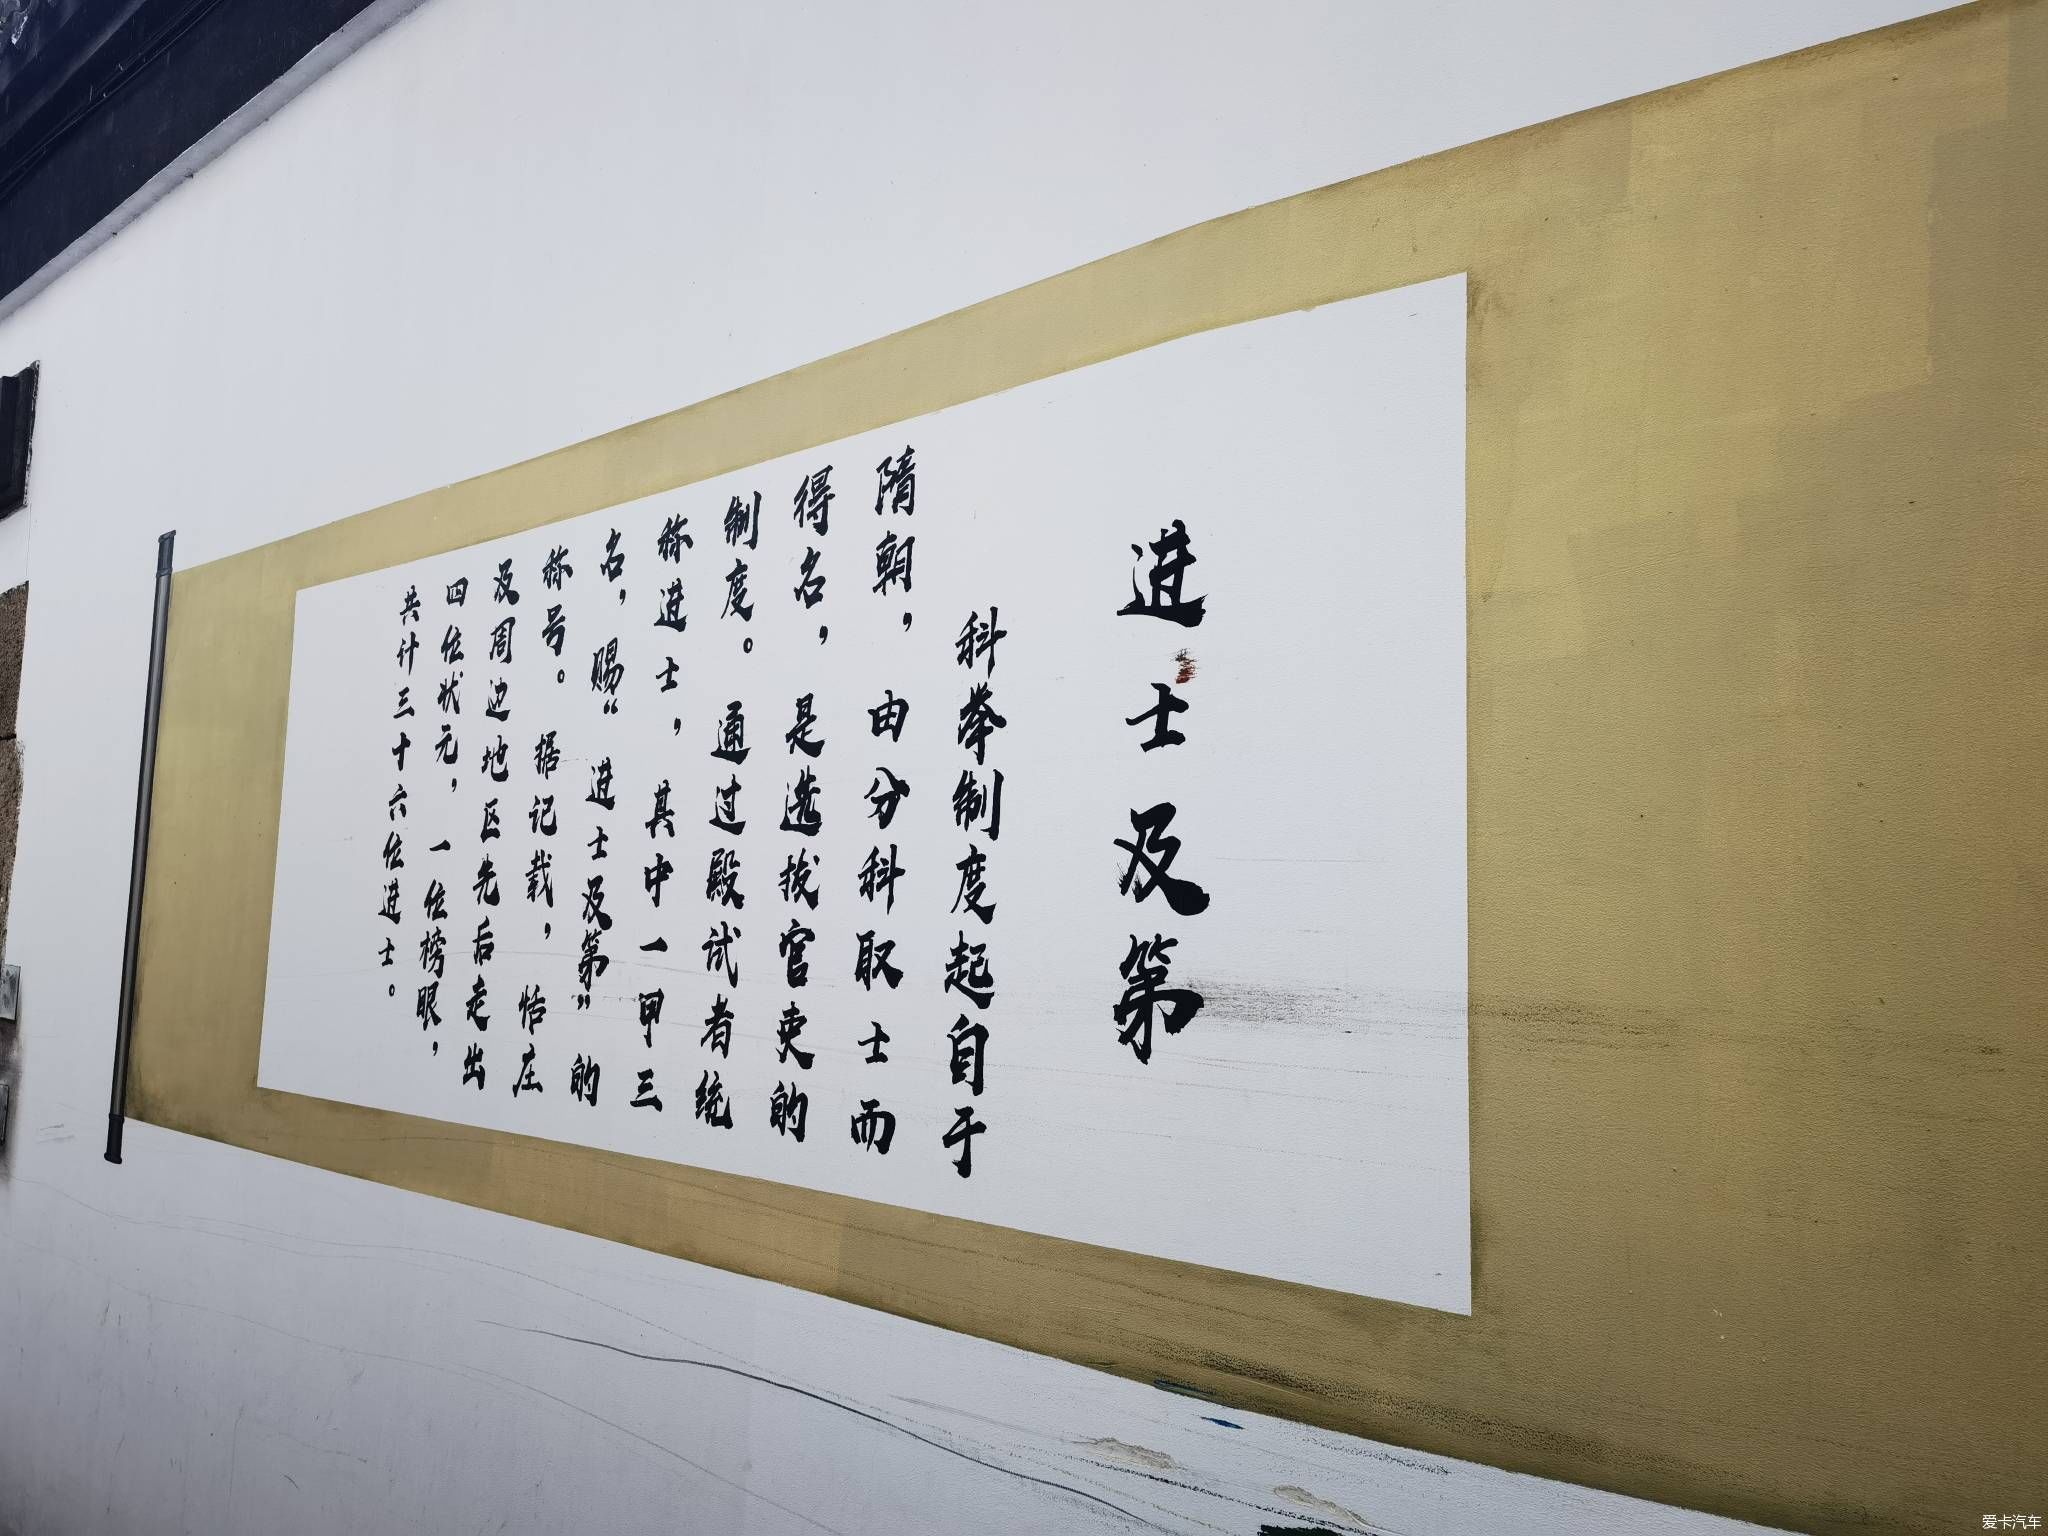 进士及第
科举制度起自于
隋朝，由分科取士而
得名，是选拔官吏的
制度。通过殿试者统
称进士，其中一甲三
名，赐“进士及第”的
称号。据记载，恬庄
及周边地区先后走出
四位状元，一位榜眼，
共计三十六位进士。
爱卡汽车